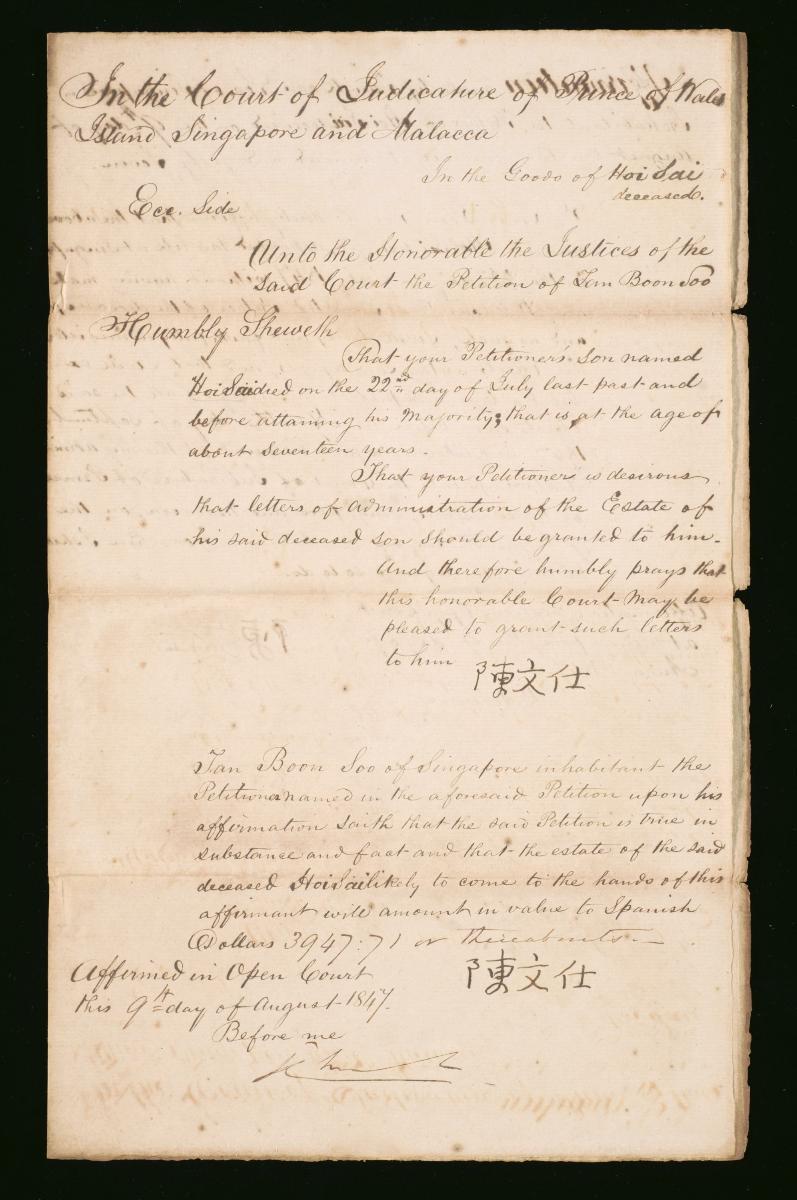 In the Court of Judicature of Prince of Wales
Island Singapore and Malacca
In the Goods of Hoi Sai
deceased.
Ecc. Side
Unto the Honorable the Justices of the
Said Court the Petition of Tan Boon Soo
Humbly Sheweth
That your Petitioner's son named
Hoi Sai died on the 22nd day of July last past and
before attaining his Majority; that is, at the age of
about Seventeen years.
That your Petitioner is desirous
that letters of administration of the Estate of
his said deceased son should be granted to him.
And therefore humbly prays that
this honorable Court May be
pleased to grant such letters
to him 陳文仕
Tan Boon Soo of Singapore inhabitant the
Petitioner named in the aforesaid Petition upon his
affirmation Saith that the said Petition is true in
substance and fact and that the estate of the said
deceased Hoi Sai likely to come to the hands of this
affirmant will amount in value to Spanish
Dollars 3947:71 or thereabouts.
陳文仕
Affirmed in Open Court
this 9th day of August 1847.
Before me